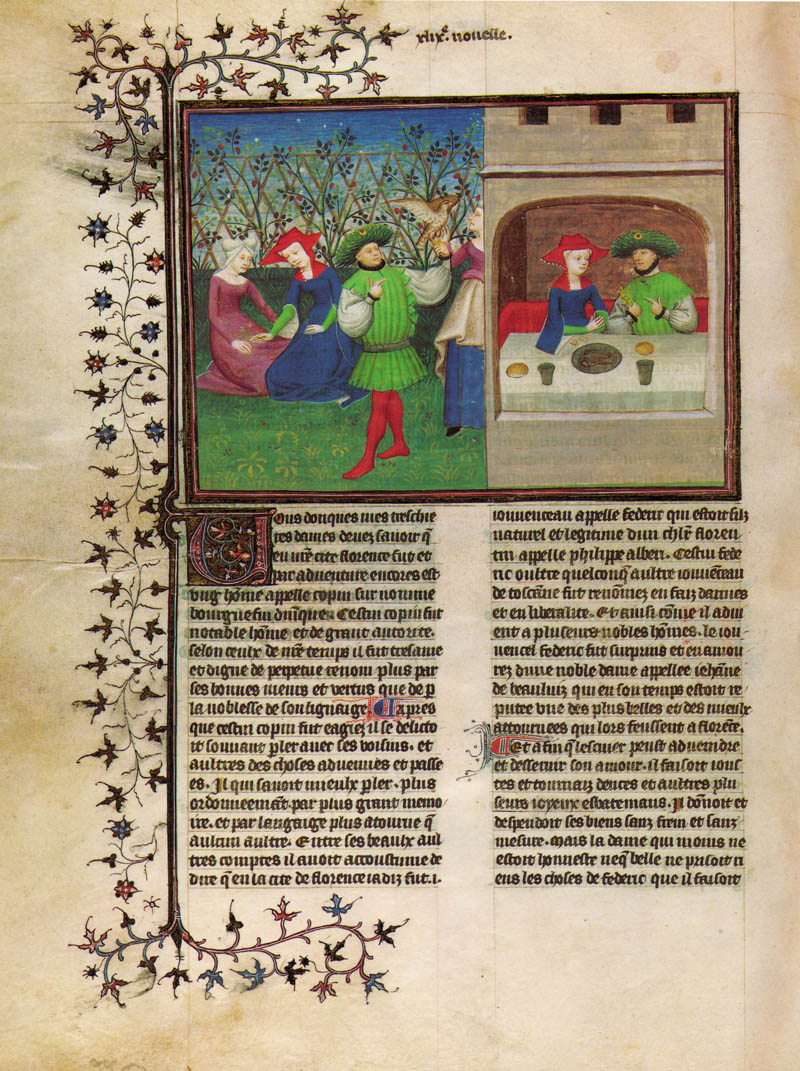 xlixe. nouelle.
Vous donques mes treschie
res dames deuez sauoir q̄
en nr̄e cite florence fut et
par aduenture encores est
vng hōme appelle copin sur nomme
bourgue fin dm̄que. Cestui copin fut
notable hōme et de grant autorite.
selon ceulx de nr̄e temps il fut tresame
et digne de perpetue renom plus par
ses bonnes meurs et vertus que de p̱
la noblesse de son lignaige. Apres
que cestui copin fut eagiez il se delicto
it souuant p̱ler auec ses voisins. et
aultres des choses aduenues et passe
es. Il qui sauoit mieulx p̱ler. plus
ordonneemēt. par plus grant memo
ire. et par langaige plus atourne q̄
aulcun aultre. Entre ses beaulx aul
tres comptes il auoit accoustume de
dire q̄ en la cite de florence iadiz fut .i.
iouuenceau appelle federic qui estoit filz
naturel et legitime dun chlr̄ floren
tin appelle philippe alberi. Cestui fede
ric oultre quelconq̄ aultre iouuēceau
de toscane fut renōmez en faiz darmes
et en liberalite. Et ainsi cōme il adui
ent a pluseurs nobles hōmes. le iou
uencel federic fut surpuis et enamou
rez dune noble dame appellee iehāne
de beauluiz qui en son temps estoit re
putee vne des plus belles et des mieulx
attournees qui lors feussent a florēce.
Et a fin q̄ lescuier peust aduenir
et desseruir son amour. il faisoit ious
tes et tournaiz dences et aultres plu
seurs ioyeux esbatemans. Il dōnoit et
despendoit ses biens sanz frein et sanz
mesure. mais la dame qui moins ne
estoit honneste neq̄ belle ne prisoit ri
ens les choses de federic que il faisoit